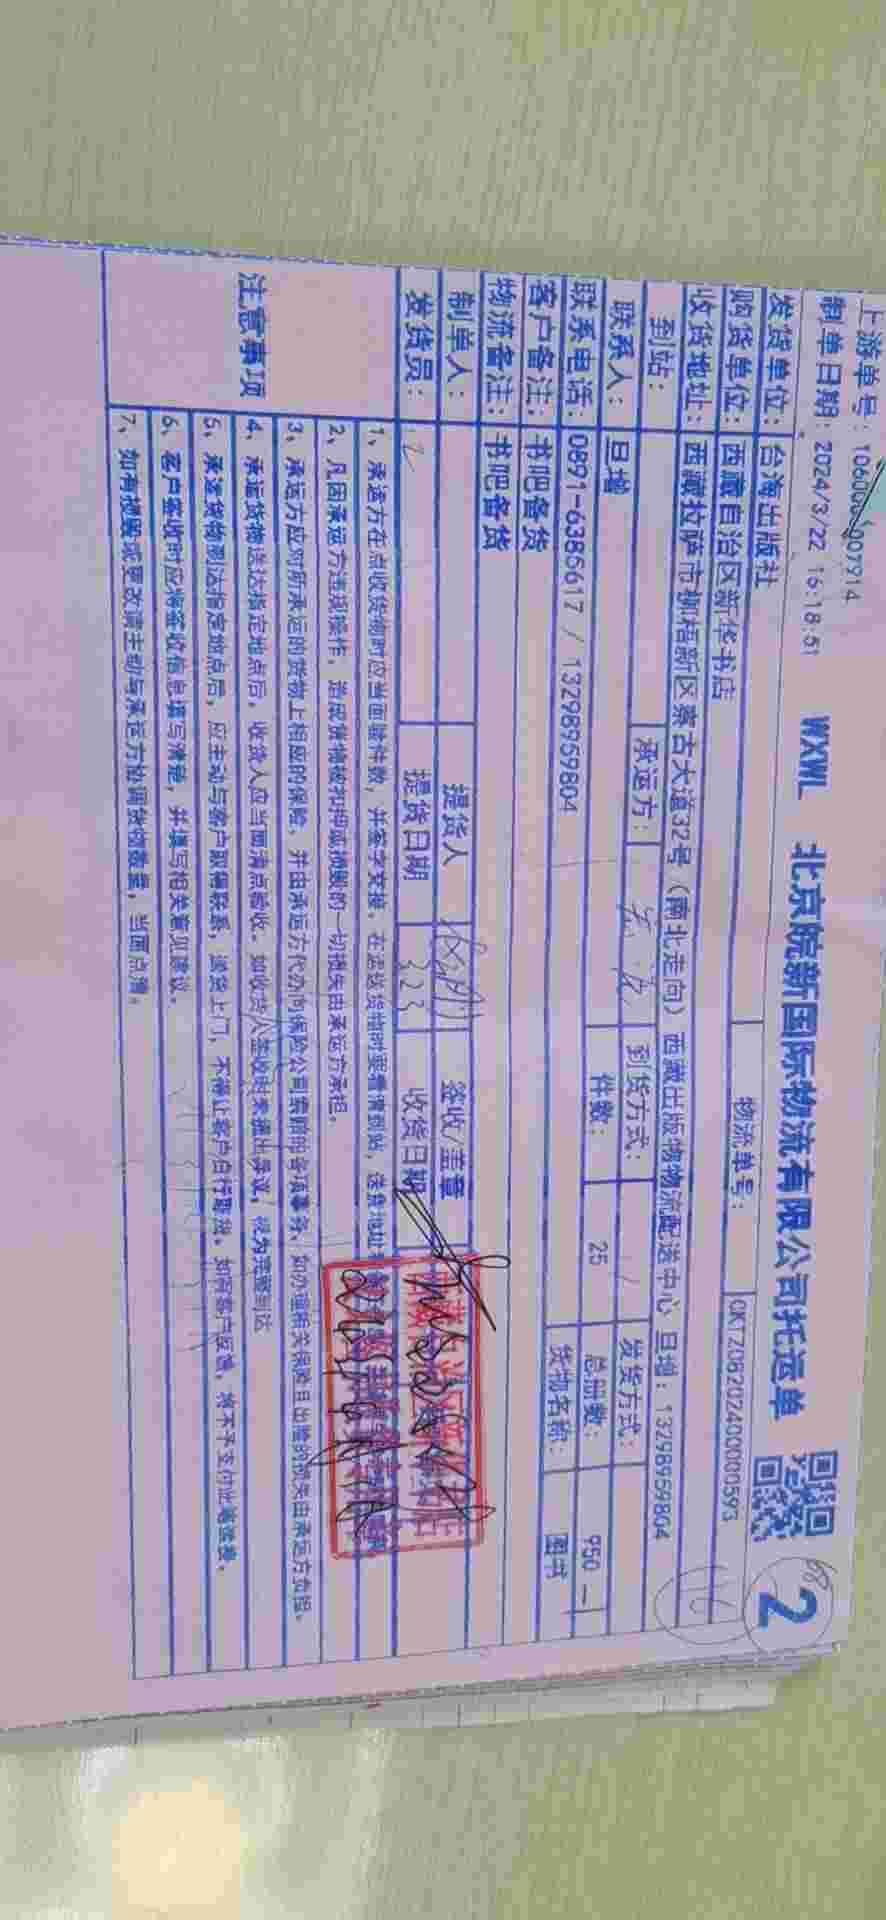 上游单号：
制单日期：2024/3/22 16:18:51 WXWL 北京皖新国际物流有限公司托运单 2
发货单位：台海出版社 物流单号：QKTZ08202400000593
购货单位：西藏自治区新华书店
收货地址：西藏拉萨市柳梧新区察古大道32号（南北走向）西藏出版物物流配送中心 旦增：13298959804
到站： 承运方： 到货方式： 发货方式：
联系人：旦增 件数：25 总册数：950
联系电话：0891-6385617 / 13298959804 货物名称：图书
客户备注：书吧备货
物流备注：书吧备货
制单人： 提货人 签收/盖章
发货员： 提货日期 323 收货日期
注意事项
1、承运方在点收货物时应当面验件数，并签字交接，在运送货物时要看清到站，送货地址
2、凡因承运方违规操作，造成货物被扣押或损毁的一切损失由承运方承担。
3、承运方应对所承运的货物上相应的保险，并由承运方代办向保险公司索赔的各项事务，如办理相关保险自出险的损失由承运方负担。
4、承运货物送达指定地点后，收货人应当面清点验收，如收货人签收时未提出异议，视为完整到达
5、承运货物到达指定地点后，应主动与客户取得联系，送货上门，不得让客户自行取货。如有客户反馈，将不予支付此笔运费。
6、客户签收时应将签收信息填写清楚，并填写相关意见建议。
7、如有损毁或更改请主动与承运方协调货物数量，当面点清。